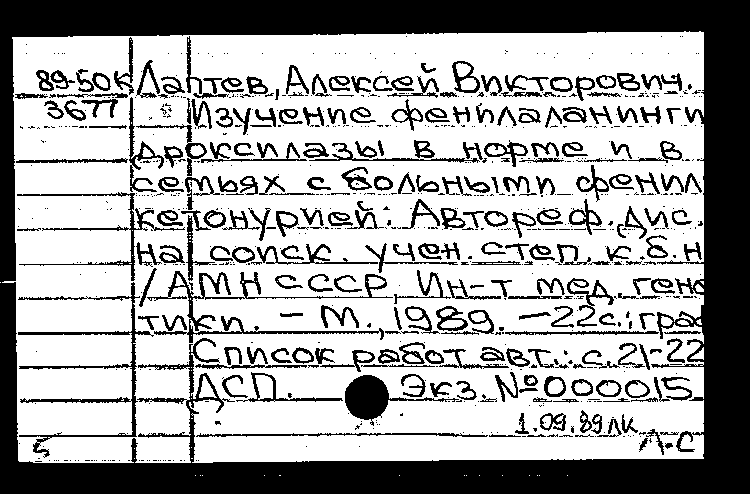 89-50К Лаптев, Алексей Викторович.
3677 Изучение фенилаланинги
дроксилазы в норме и в
семьях с больными фенил
кетонурией: Автореф. дис.
на соиск. учен. степ. к.б.н
/ АМН СССР, Ин-т мед. гене
тики. - М., 1989. - 22с.: граф
Список работ авт.: с. 21-22
ДСП. Экз. №000015
1.09.89 ЛК
5 Л-С